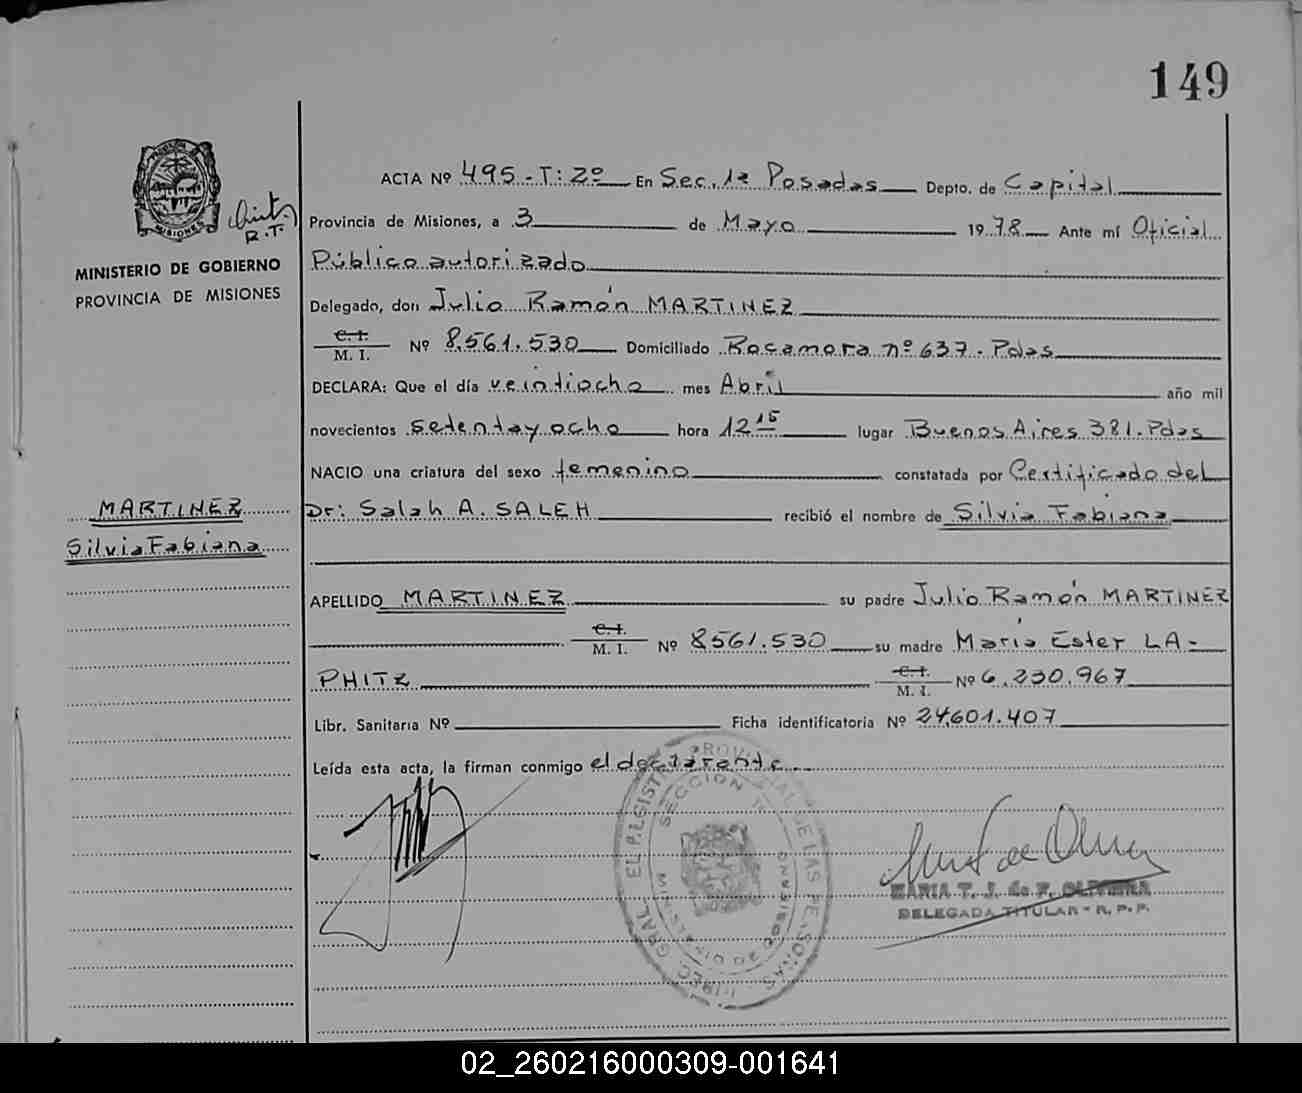 149
ACTA Nº 495 - T: 2º En Sec. 1ª Posadas Depto. de Capital
Provincia de Misiones, a 3 de Mayo 1978 Ante mí Oficial
R.T.
MINISTERIO DE GOBIERNO
PROVINCIA DE MISIONES
Público autorizado
Delegado, don Julio Ramón MARTINEZ
C. I.
M. I. Nº 8.561.530 Domiciliado Rocamora nº 637. Pdas
DECLARA: Que el día veintiocho mes Abril año mil
novecientos setentayocho hora 12 15 lugar Buenos Aires 381. Pdas
NACIO una criatura del sexo femenino constatada por Certificado del
MARTINEZ
Silvia Fabiana
Dr: Salah A. SALEH recibió el nombre de Silvia Fabiana
APELLIDO MARTINEZ su padre Julio Ramón MARTINEZ
C. I.
M. I. Nº 8561.530 su madre María Ester LA-
PHITZ C. I.
M. I. Nº 6.230.967
Libr. Sanitaria Nº Ficha identificatoria Nº 24.601.407
Leída esta acta, la firman conmigo el declarante
MARIA T. J. de F. OLIVEIRA
DELEGADA TITULAR - R. P. P.
02_260216000309-001641